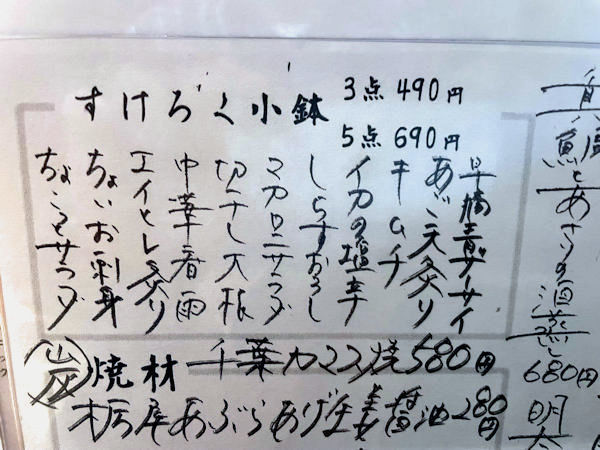 すけろく小鉢
3点 490円
5点 690円
早摘青ザーサイ
あご天炙り
キムチ
イカの塩辛
しらすおろし
マカロニサラダ
切干し大根
中華春雨
エイヒレ炙り
ちょいお刺身
ちょこっとサラダ
炭焼材
千葉カマス焼580円
栃尾あぶらあげ生姜醤油280円
魚とあさりの酒蒸し
680円
明